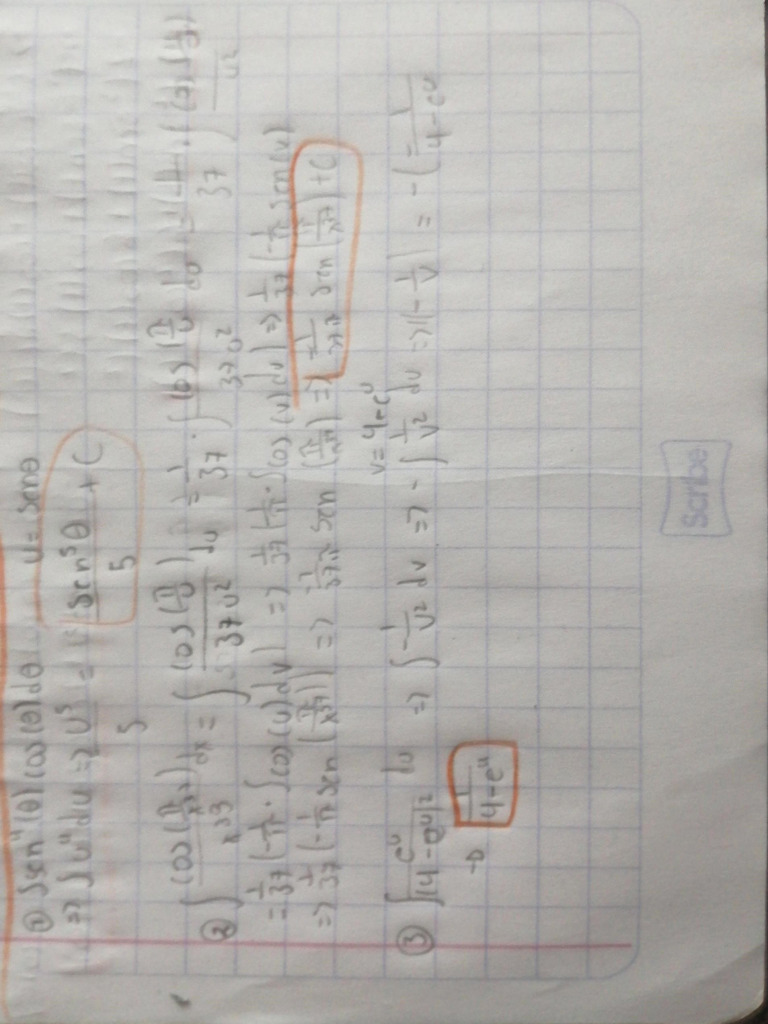 ① ∫ sen⁴(θ) cos(θ) dθ   u = senθ
=> ∫ u⁴ du => u⁵/5 = sen⁵θ/5 + C
② ∫ cos(π/x³⁷)/x³⁸ dx = ∫ cos(π/u)/37u² du = 1/37 · ∫ cos(π/u)/u²
= 1/37 (-1/π · ∫ cos(v) dv) => 1/37 (-1/π · ∫ cos(v) dv) => 1/37 (-1/π sen(v)
=> 1/37 (-1/π sen(π/x³⁷)) => -1/37π sen(π/x³⁷) => -1/37π sen(π/x³⁷) + C
v = 4-eᵘ
③ ∫ eᵘ/(4-eᵘ)² du => ∫ -1/v² dv => -∫ 1/v² dv => -(-1/v) = -(-1/4-eᵘ
→ 1/4-eᵘ
Scribe